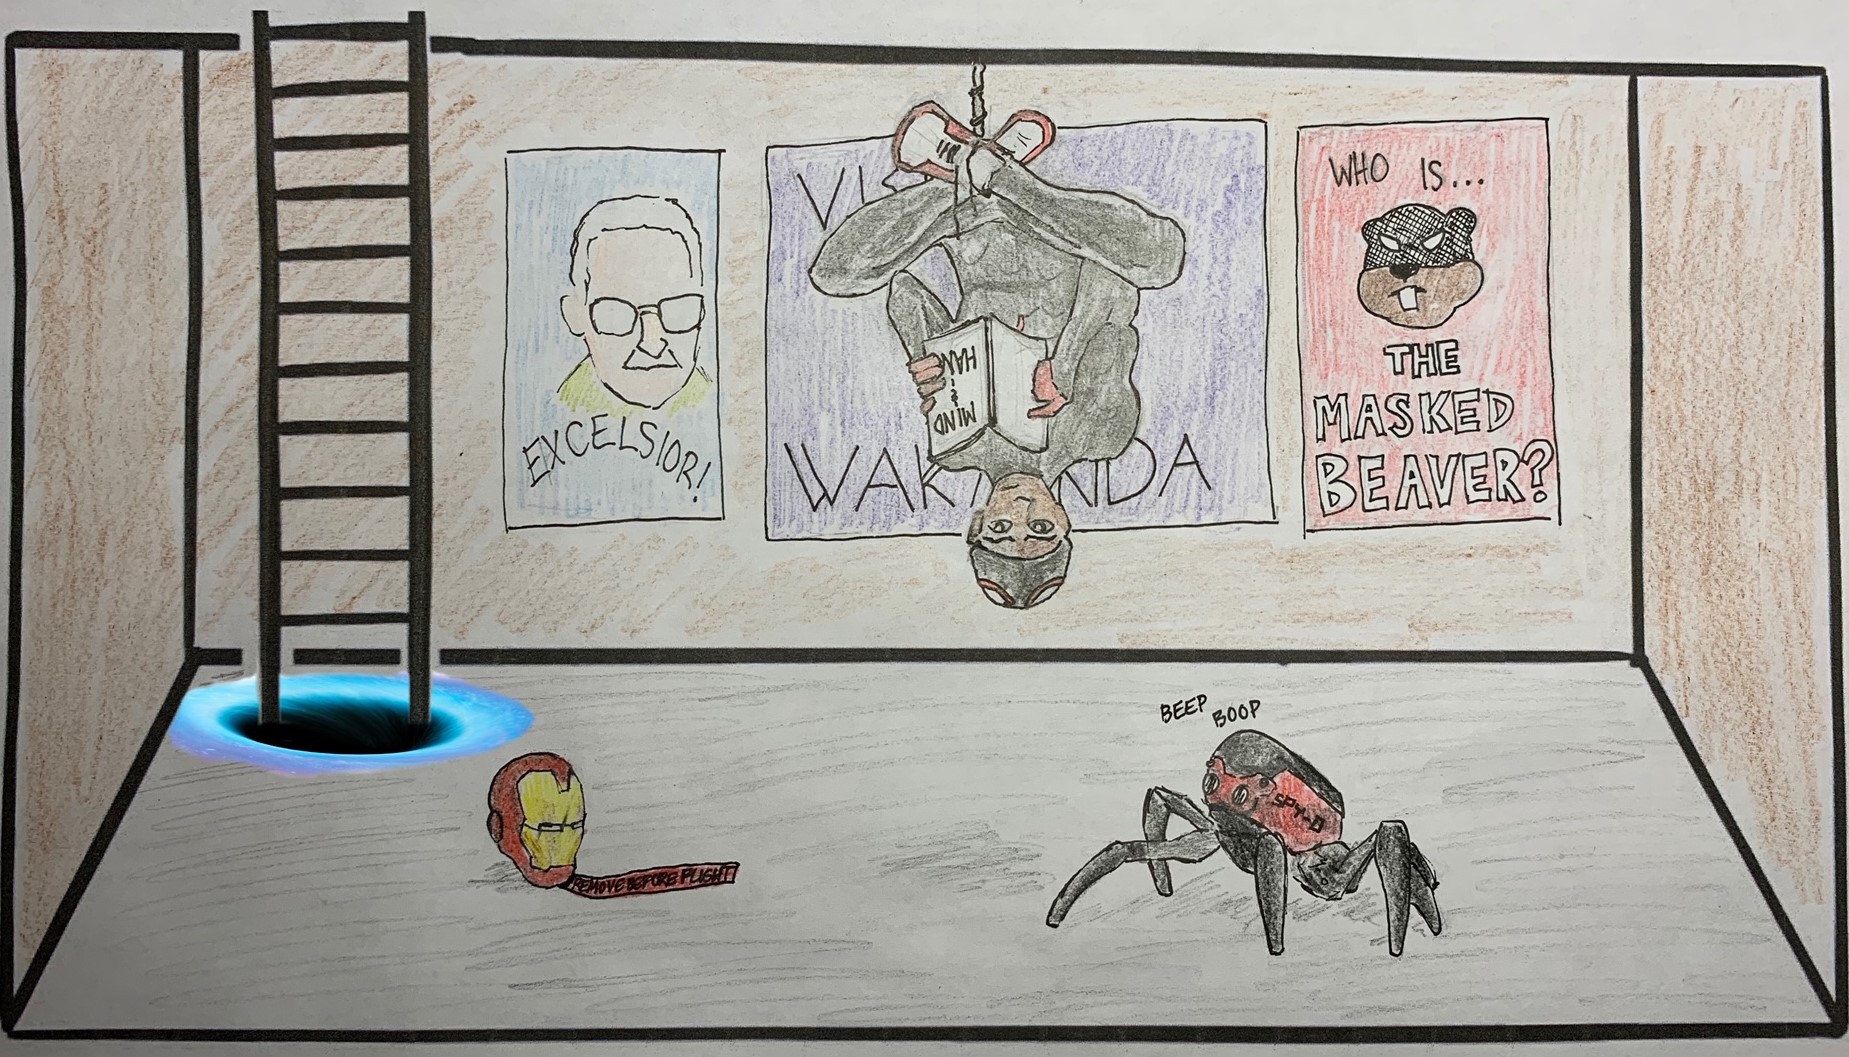 EXCELSIOR!
WAKANDA
MIND
&
HAND
WHO IS...
THE
MASKED
BEAVER?
BEEP
BOOP
SPY-D
REMOVE BEFORE FLIGHT